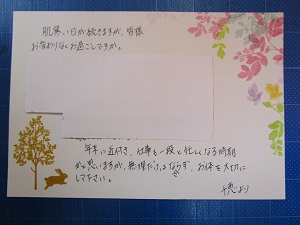 肌寒い日が続きますが、皆様
お変わりなくお過ごしですか。
年末に近付き、仕事も一段と忙しくなる時期
かと思いますが、無理だけはなさらず、お体を大切に
して下さい。
より